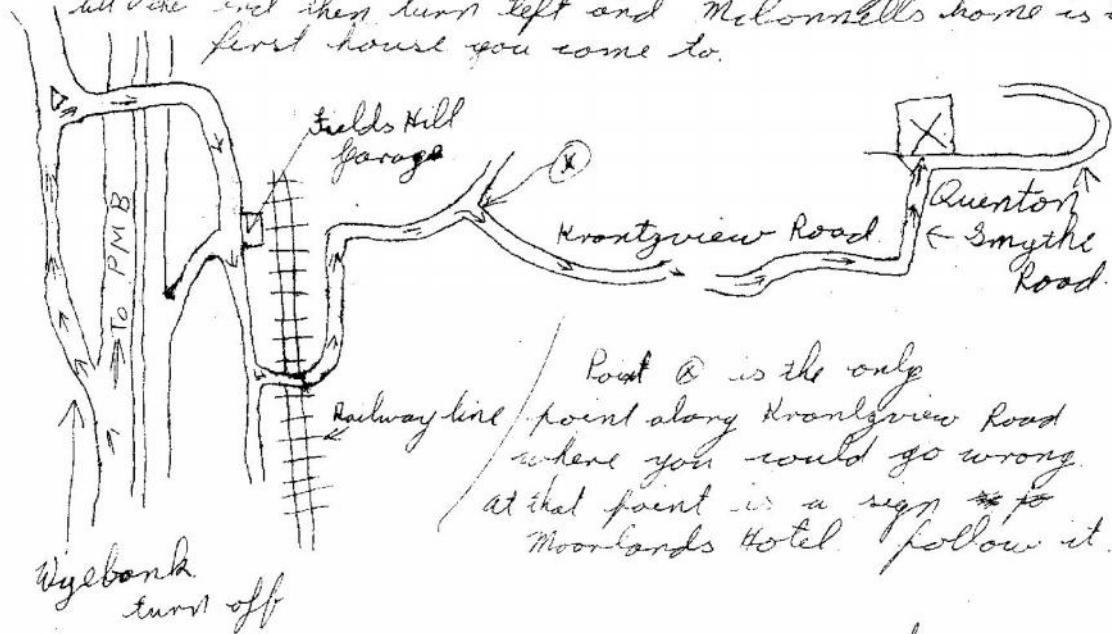 till the end then turn left and McConnells home is
first house you come to.
Fields Hill
Garage
X
X
To PMB
Krantzview Road
Quenton
Smythe
Road.
Railway line
Point X is the only
point along Krantzview Road
where you could go wrong.
at that point is a sign to
Moorlands Hotel follow it.
Wyebank
turn off